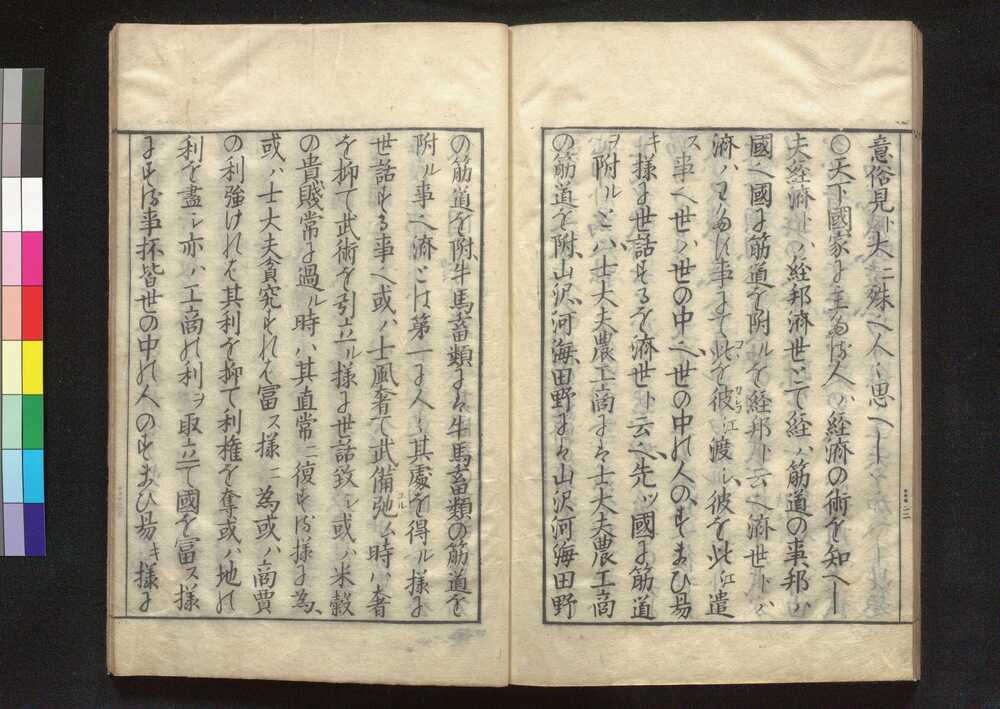 意俗見ト大ニ殊也人々思ヘし
○天下國家に主たる人ハ経濟の術を知へし
夫経濟トハ経邦濟世とて経ハ筋道の事邦ハ
國也國に筋道を附ルを経邦ト云也濟世トハ
濟ハわたす事にて此を彼江渡し彼を此江遣
ス事也世ハ世の中也世の中の人のすまひ易
キ様に世話するを濟世ト云也先ツ國に筋道
ヲ附ルとハ士大夫農工商には士大夫農工商
の筋道を附、山沢河海田野には山沢河海田野
の筋道を附、牛馬畜類には牛馬畜類の筋道を
附ル事也濟とは第一に人々其處を得ル様に
世話する事也或ハ士風奢て武備弛ム時ハ奢
を抑て武術を引立ル様に世話致し或ハ米穀
の貴賤常に過ル時ハ其直常ニ復する様に為、
或ハ士大夫貪究すれは富ス様ニ為或ハ商賈
の利強けれは其利を抑て利権を奪或ハ地の
利を盡し亦ハ工商の利ヲ取立て國を富ス様
にする事抔皆世の中の人のすまひ易キ様に